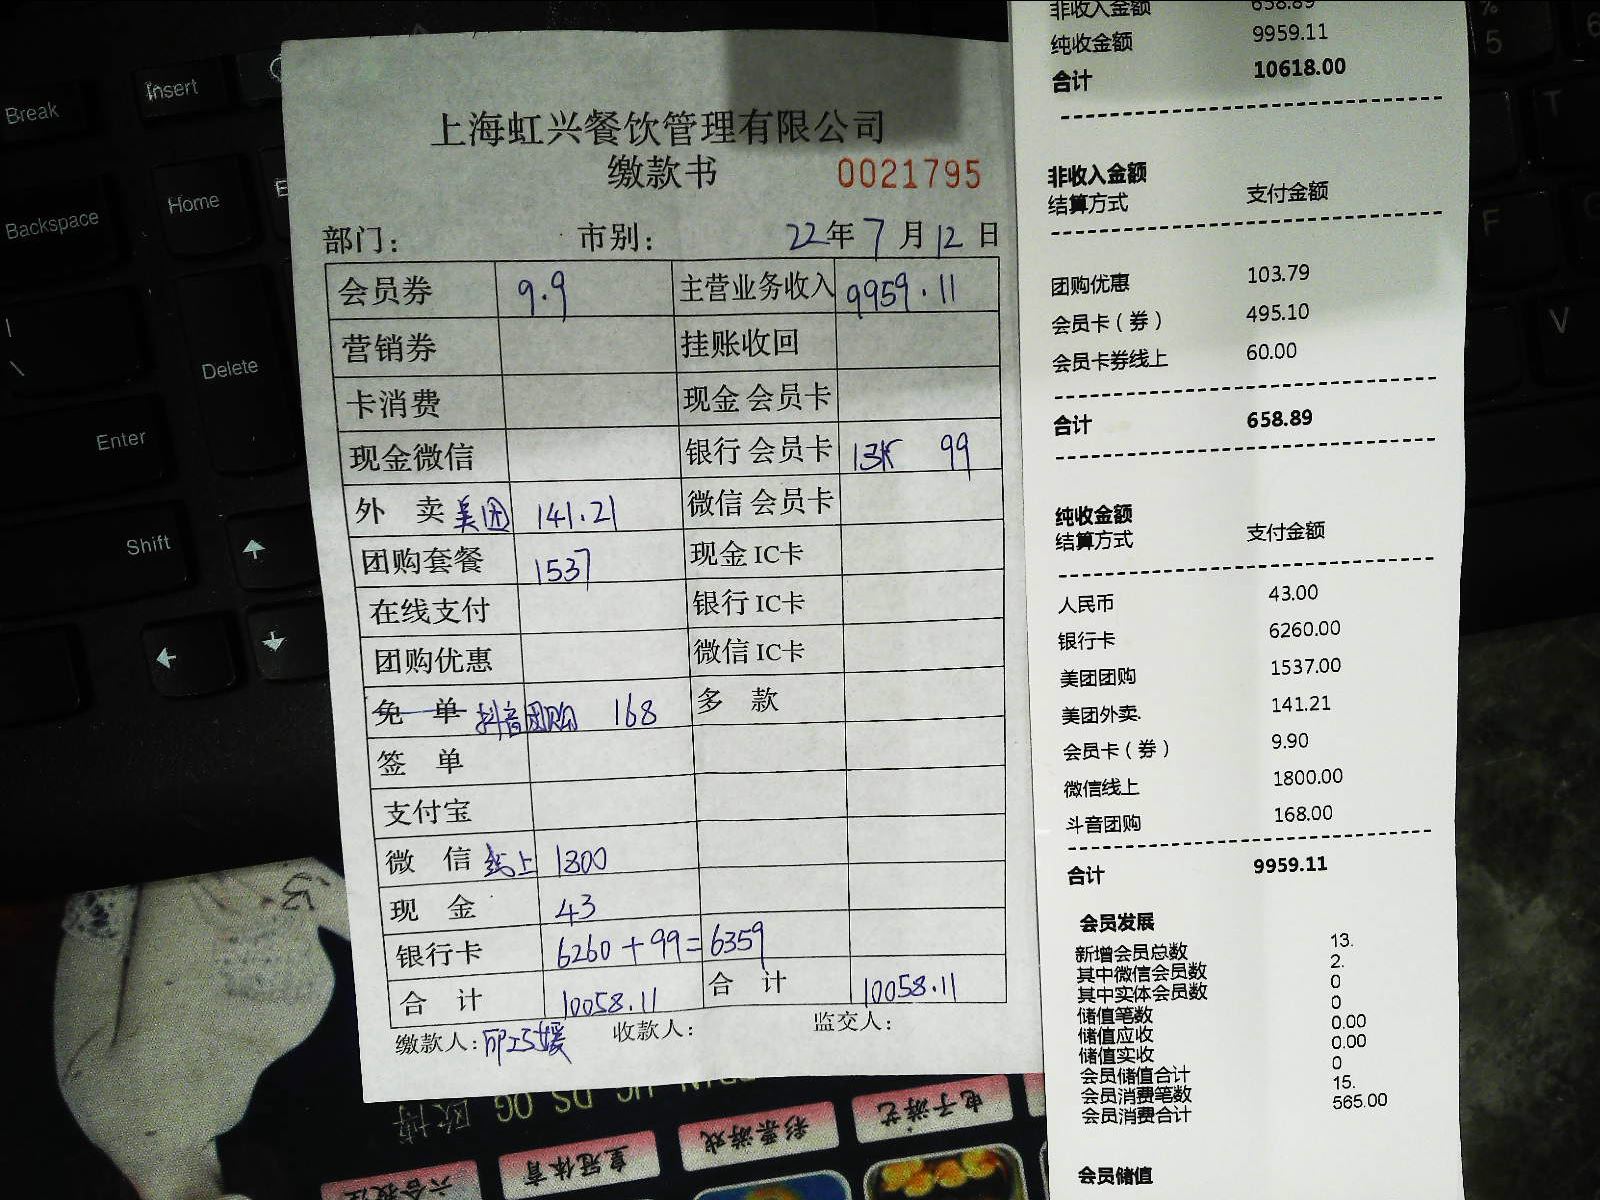 Break
Insert
Backspace
Home
Delete
Enter
Shift
上海虹兴餐饮管理有限公司
缴款书 0021795
部门： 市别： 22年7月12日
会员券 9.9 主营业务收入 9959.11
营销券 挂账收回
卡消费 现金 会员卡
现金微信 银行 会员卡 13张 99
外 卖 美团 141.21 微信 会员卡
团购套餐 1537 现金 IC卡
在线支付 银行 IC卡
团购优惠 微信 IC卡
免 单 抖音团购 168 多 款
签 单
支付宝
微 信 线上 1800
现 金 43
银行卡 6260+99=6359
合 计 10058.11 合 计 10058.11
缴款人： 收款人： 监交人：
非收入金额 658.89
纯收金额 9959.11
合计 10618.00
非收入金额
结算方式 支付金额
团购优惠 103.79
会员卡（券） 495.10
会员卡券线上 60.00
合计 658.89
纯收金额
结算方式 支付金额
人民币 43.00
银行卡 6260.00
美团团购 1537.00
美团外卖. 141.21
会员卡（券） 9.90
微信线上 1800.00
斗音团购 168.00
合计 9959.11
会员发展
新增会员总数 13.
其中微信会员数 2.
其中实体会员数 0
储值笔数 0
储值应收 0.00
储值实收 0.00
会员储值合计 0
会员消费笔数 15.
会员消费合计 565.00
会员储值
%
5
6
T
F
G
V
欧博 OG DS
电子游艺
彩票游戏
皇冠体育
六合投注